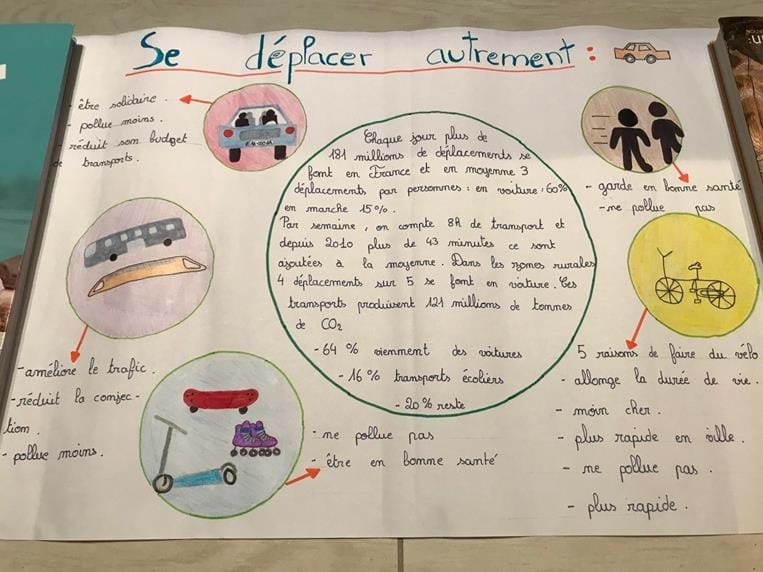 Se déplacer autrement :
- être solidaire.
- pollue moins.
- réduit som budget
de transports.
Chaque jour plus de
181 millions de déplacements se
font en France et en moyenne 3
déplacements par personnes : en voiture : 60%
en marche 15%.
Par semaine, on compte 8h de transport et
depuis 2010 plus de 43 minutes ce sont
ajoutées à la moyenne. Dans les zones rurales
4 déplacements sur 5 se font en voiture. Ces
transports produisent 121 millions de tonnes
de CO2
- 64 % viennent des voitures
- 16 % transports écoliers
- 20% reste
- garde en bonne santé
- ne pollue pas
- améliore le trafic.
- réduit la conjec-
tion.
- pollue moins.
- ne pollue pas
- être en bonne santé
5 raisons de faire du vélo
- allonge la durée de vie.
- moin cher.
- plus rapide en ville.
- ne pollue pas.
- plus rapide.